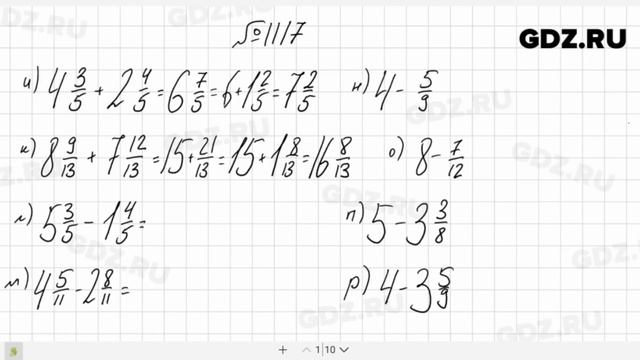 №1117
GDZ.RU
и) 4 3/5 + 2 4/5 = 6 7/5 = 6 + 1 2/5 = 7 2/5
н) 4 - 5/9
к) 8 9/13 + 7 12/13 = 15 + 21/13 = 15 + 1 8/13 = 16 8/13
о) 8 - 7/12
л) 5 3/5 - 1 4/5 =
п) 5 - 3 3/8
м) 4 5/11 - 2 8/11 =
р) 4 - 3 5/9
1 10